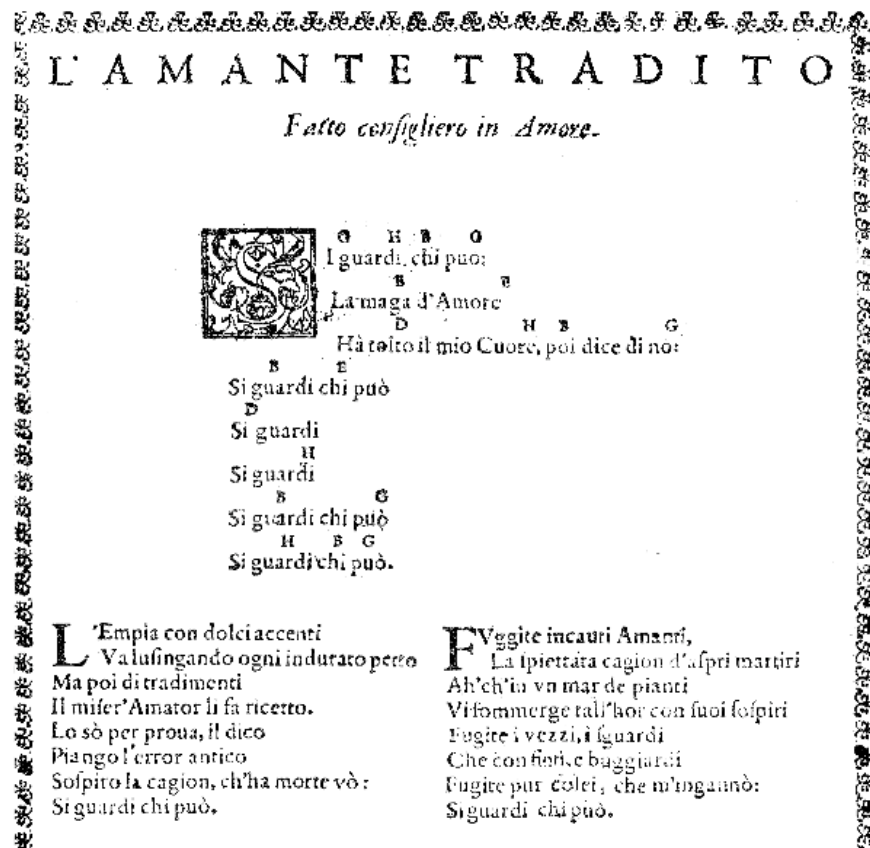 L'AMANTE TRADITO
Fatto consigliero in Amore.
G H B G
SI guardi, chi puo:
B E
La maga d'Amore
D H B G
Hà tolto il mio Cuore, poi dice di nò:
B E
Si guardi chi può
D
Si guardi
H
Si guardi
B G
Si guardi chi può
H B G
Si guardi chi può.
L'Empia con dolci accenti
Va lusingando ogni indurato petto
Ma poi di tradimenti
Il miser'Amator li fa ricetto.
Lo sò per proua, il dico
Piango l'error antico
Sospito la cagion, ch'ha morte vò:
Si guardi chi può.
FVggite incauti Amanti,
La spiettata cagion d'aspri martiri
Ah'ch'in vn mar de pianti
Vi sommerge tall'hor con suoi sospiri
Fugite i vezzi, i sguardi
Che con finti, e buggiardi
Fugite pur colei, che m'ingannò:
Si guardi chi può.